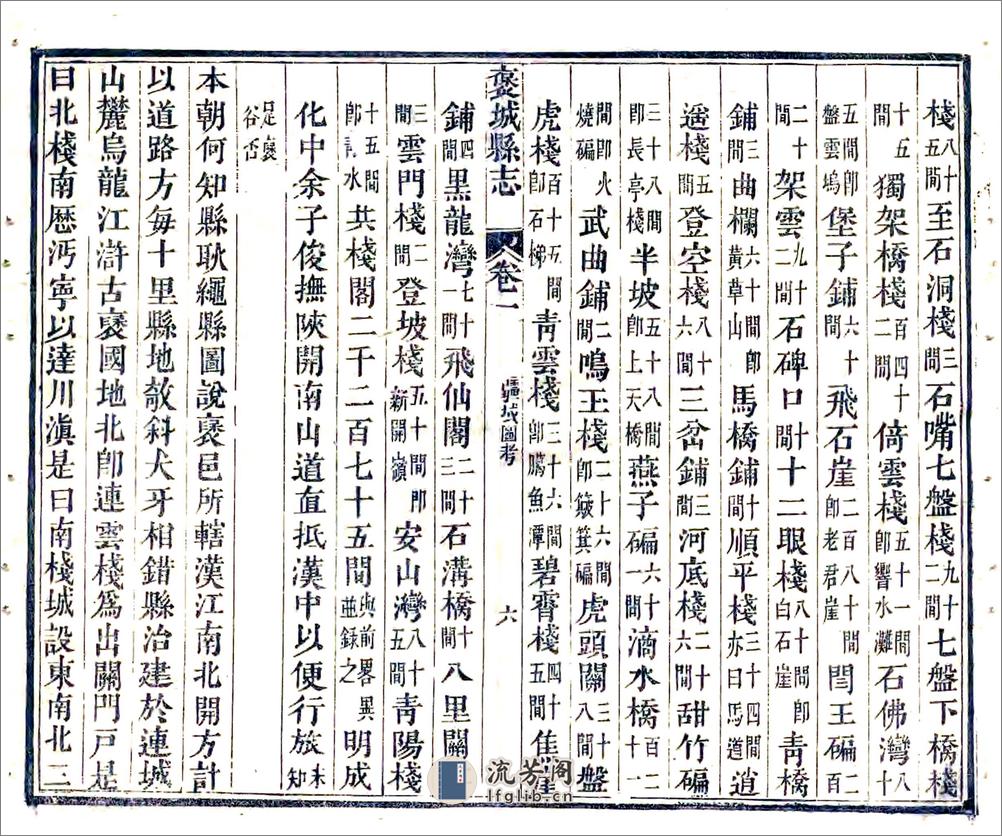 棧八十五間至石洞棧三間石嘴七盤棧九十二間七盤下橋棧
十五間獨架橋棧百四十二間倚雲棧五十一間即響水灘石佛灣八十
五間即盤雲塢堡子鋪六十間飛石崖二百八十間即老君崖閻王碥百二
二十間架雲九十二間石碑口十間十二眼棧八十間即白石崖青橋
鋪三間曲欄六十間即黃草山馬橋鋪十間順平棧三十四間亦曰馬道逍
遙棧五間登空棧八十六間三岔鋪三間河底棧二十六間甜竹碥
三十八間即長亭棧半坡五十八間即上天橋燕子碥六十一間滴水橋百二十一
間即火燒碥武曲鋪二間鳴王棧二十六間即簸箕碥虎頭關三十八間盤
虎棧百十五間即石梯青雲棧三十六間即臕魚潭碧霄棧四十五間焦崖
褒城縣志 卷一 疆域圖考 六
鋪四間黑龍灣七十一間飛仙閣二十三間石溝橋十間八里關
三間雲門棧二間登坡棧五十間即新開嶺安山灣八十五間青陽棧
十五間即青水共棧閣二千二百七十五間與前畧異並錄之明成
化中余子俊撫陝開南山道直抵漢中以便行旅未知
是褒谷否
本朝何知縣耿繩縣圖說褒邑所轄漢江南北開方計
以道路方每十里縣地敧斜犬牙相錯縣治建於連城
山麓烏龍江滸古褒國地北即連雲棧為出關門戶是
曰北棧南歷沔寧以達川滇是曰南棧城設東南北三
流芳阁
lfglib.cn